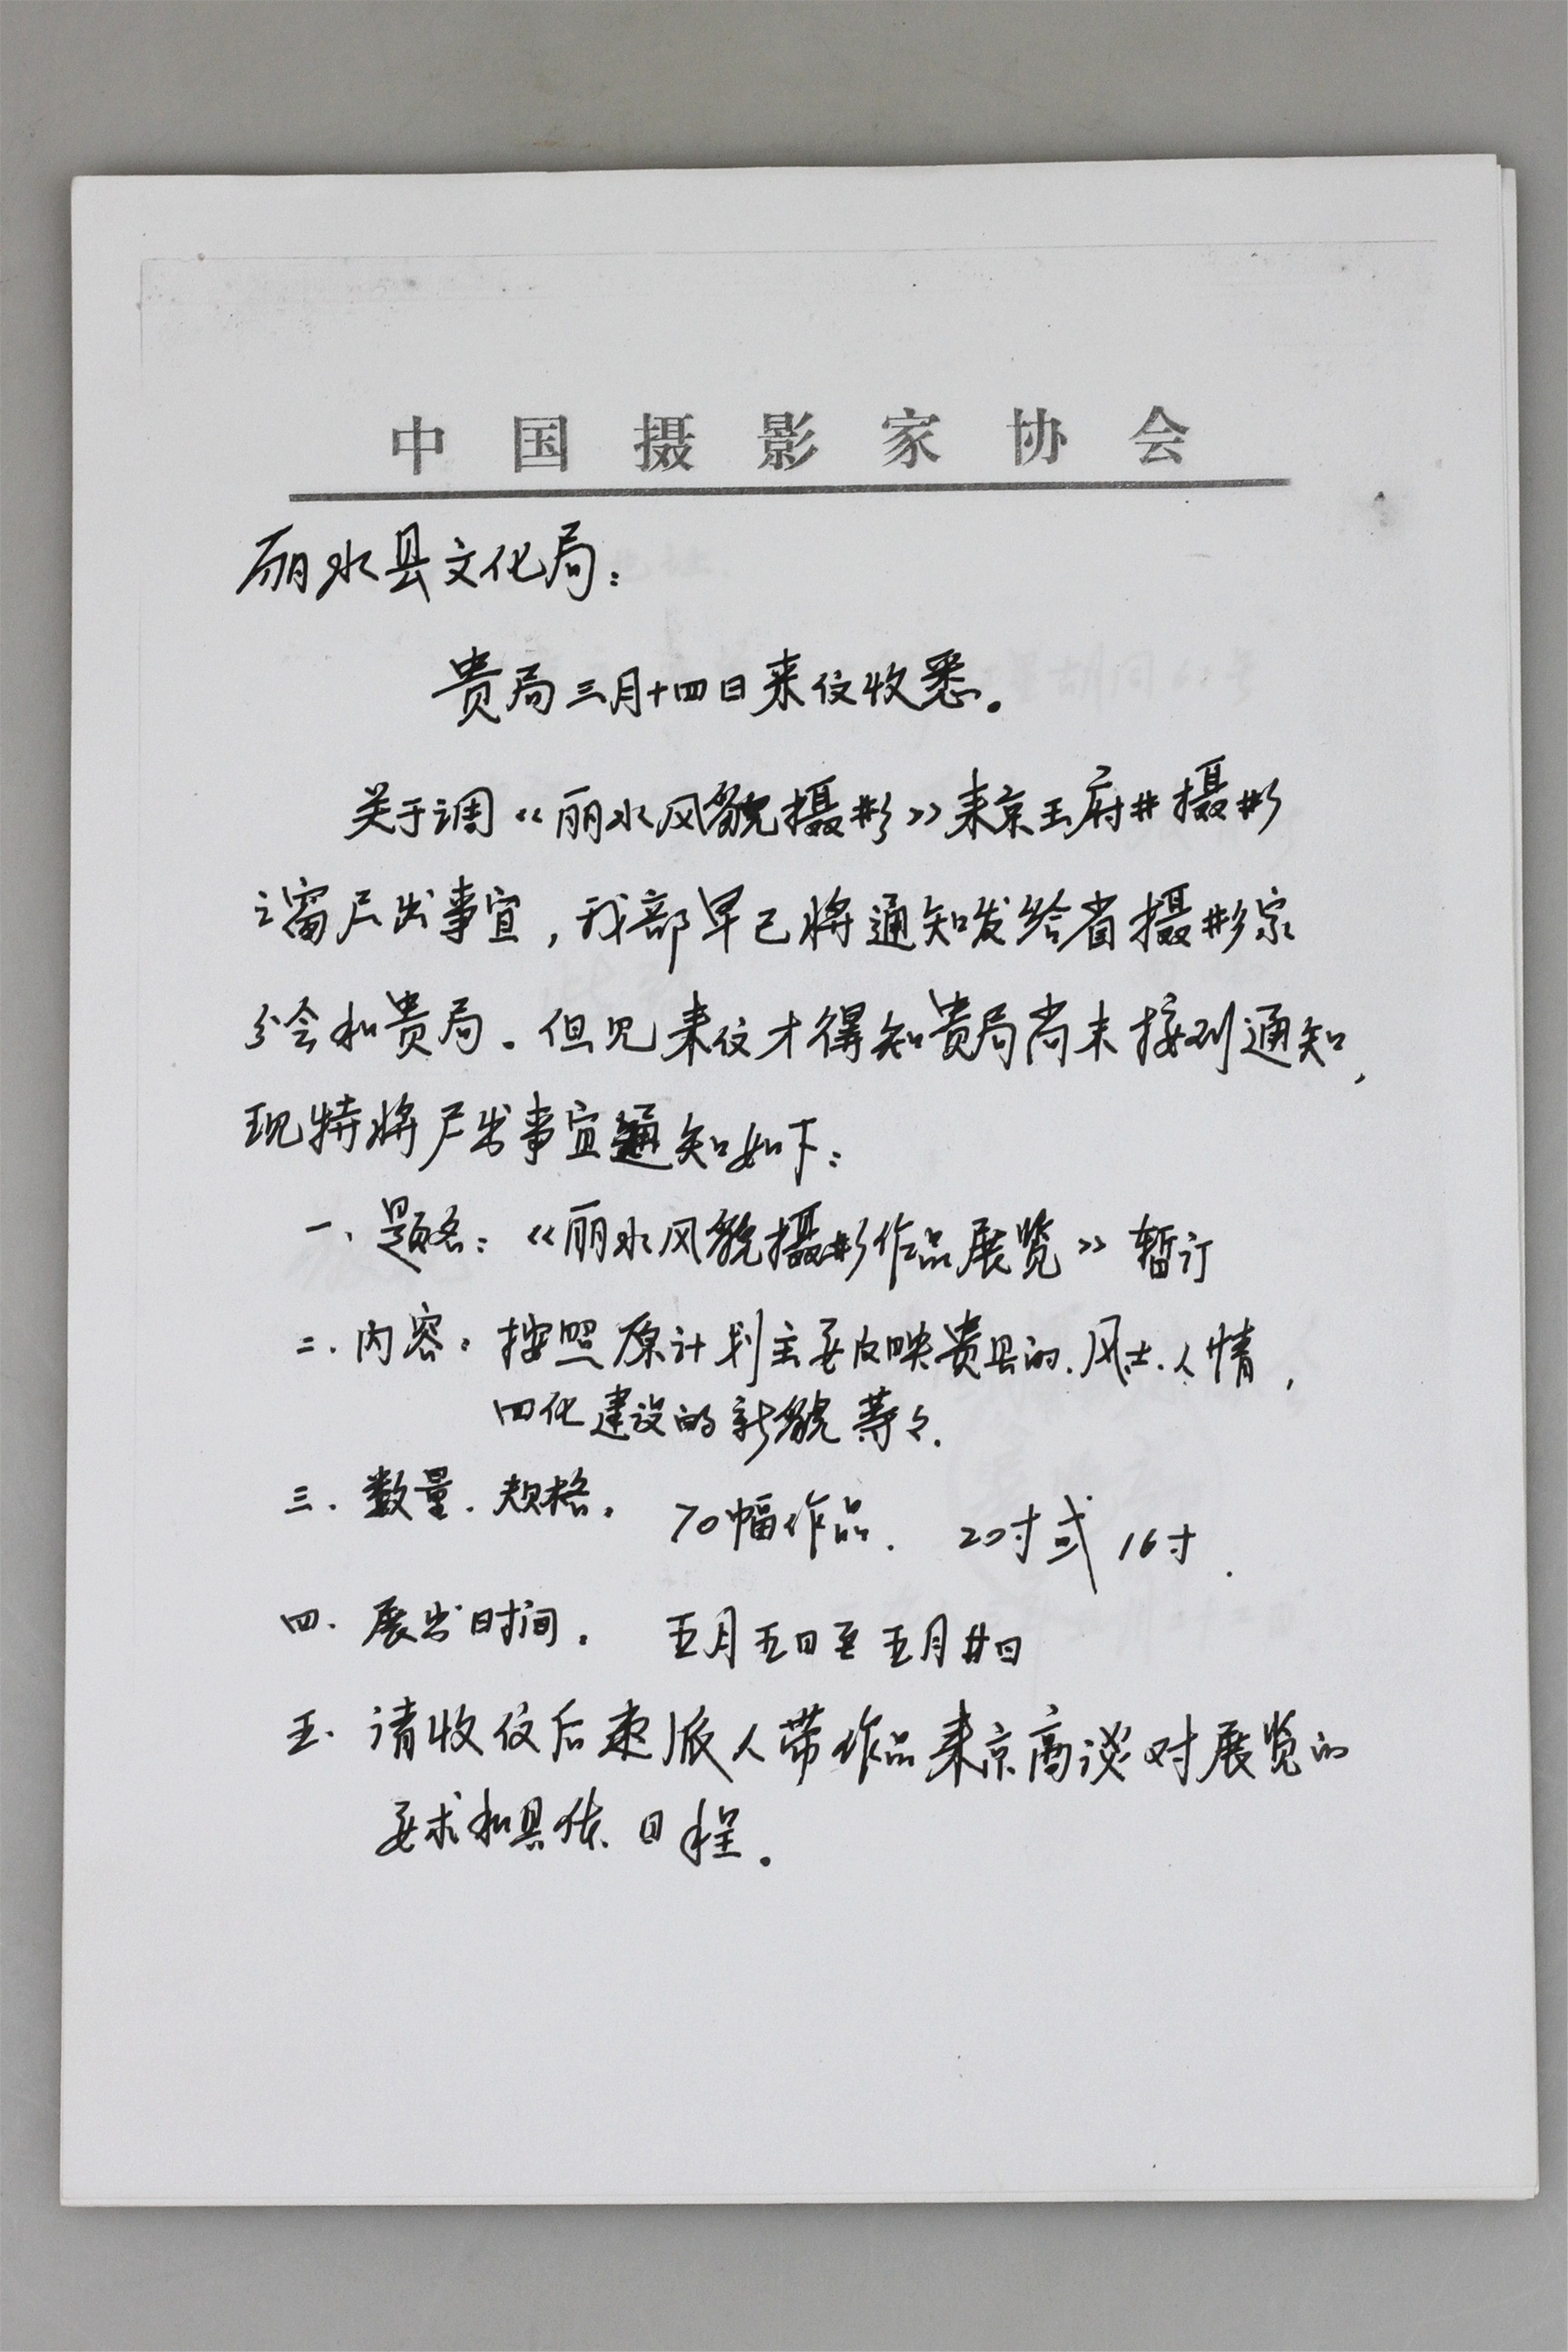 中国摄影家协会
丽水县文化局：
贵局三月十四日来信收悉。
关于调《丽水风貌摄影》来京王府井摄影
之窗尸出事宜，我部早已将通知发给省摄影家
分会和贵局。但见来信才得知贵局尚未接到通知，
现特将尸出事宜通知如下：
一、题名：《丽水风貌摄影作品展览》暂订
二．内容：按照原计划主要反映贵县的．风土．人情，
四化建设的新貌等々．
三．数量．规格： 70幅作品． 20寸或16寸．
四．展出时间： 五月五日至五月廿日
五．请收信后速派人带作品来京商谈对展览的
要求和具体日程。